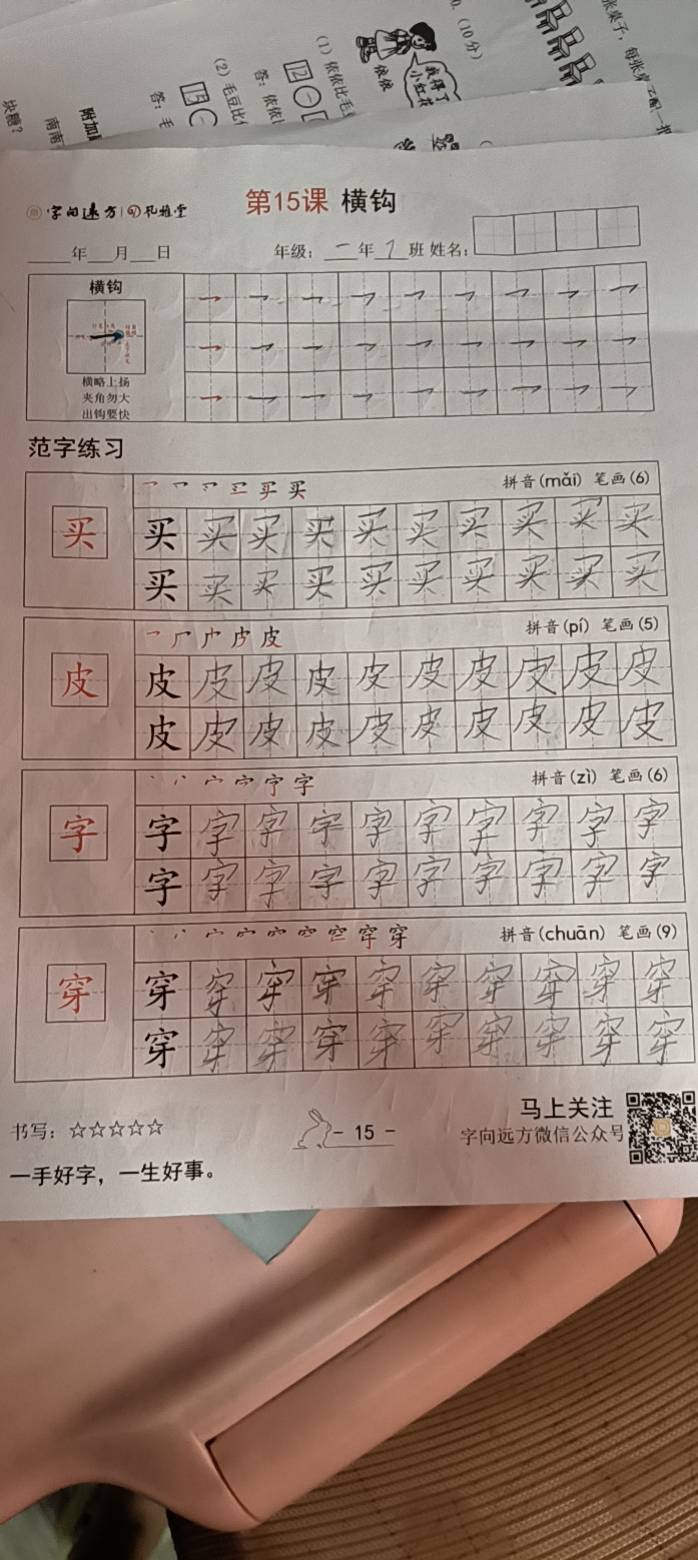 0.（10分）
张桌子，每张桌子配一把
我得了
小红花
依依
（1）依依比毛豆
12
答：依依
（2）毛豆比
15
答：毛
附加
南南
块糖？
字向远方 孔雅堂
第15课 横钩
年 月 日 年级： 一 年 7 班 姓名：
横钩
横略上扬
夹角勿大
出钩要快
范字练习
拼音(mǎi) 笔画(6)
买 买 买 买 买 买 买 买 买 买 买
买 买 买 买 买 买 买 买 买 买
拼音(pí) 笔画(5)
皮 皮 皮 皮 皮 皮 皮 皮 皮 皮 皮
皮 皮 皮 皮 皮 皮 皮 皮 皮 皮
拼音(zì) 笔画(6)
字 字 字 字 字 字 字 字 字 字 字
字 字 字 字 字 字 字 字 字 字
拼音(chuān) 笔画(9)
穿 穿 穿 穿 穿 穿 穿 穿 穿 穿 穿
穿 穿 穿 穿 穿 穿 穿 穿 穿 穿
书写：☆☆☆☆☆
- 15 -
马上关注
字向远方微信公众号
一手好字，一生好事。